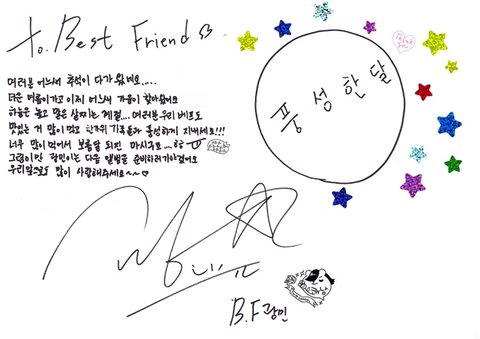 to. Best Friend
Thank you
여러분 어느새 추석이 다가 왔네요.....
더운 여름이가고 이제 어느새 가을이 찾아왔네요
하늘은 높고 말은 살찌는 계절... 여러분 우리 베프도
맛있는 거 많이 먹고 한가위 가족들과 풍성하게 지내세요!!!
너무 많이 먹어서 보름달 되진 마시구요..
그럼이만 광민이는 다음 앨범을 준비하러가야겠어요
우리앞으로도 많이 사랑해주세요~~♡
풍성한달
B.F 광민